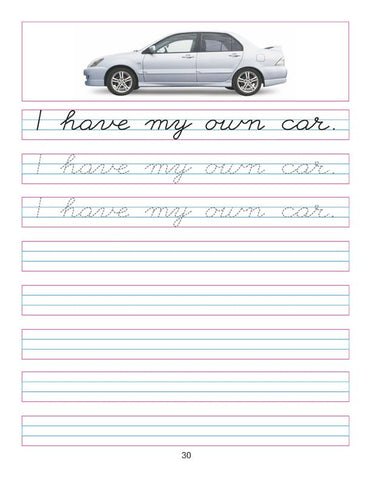 I have my own car.
I have my own car.
I have my own car.
30